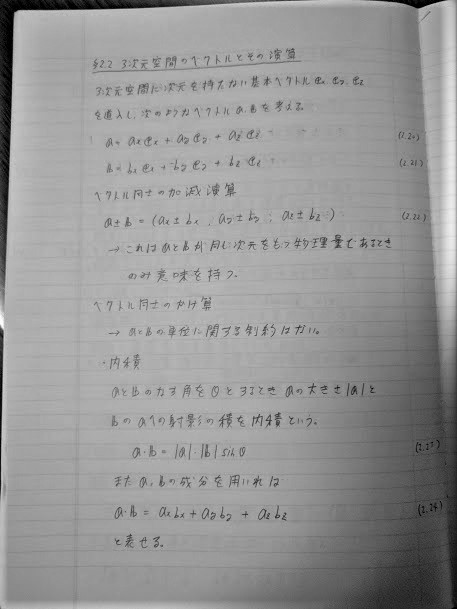 §2.2 3次元空間のベクトルとその演算
3次元空間に次元を持たない基本ベクトル 𝕖x, 𝕖y, 𝕖z
を導入し、次のようなベクトル 𝕒, 𝕓 を考える。
𝕒 = ax𝕖x + ay𝕖y + az𝕖z (2.20)
𝕓 = bx𝕖x + by𝕖y + bz𝕖z (2.21)
ベクトル同士の加減演算
𝕒 ± 𝕓 = (ax ± bx , ay ± by , az ± bz) (2.22)
→ これは𝕒と𝕓が同じ次元をもつ物理量であるとき
のみ意味を持つ。
ベクトル同士のかけ算
→ 𝕒と𝕓の単位に関する制約はない。
・内積
𝕒と𝕓のなす角をθとするとき 𝕒の大きさ|𝕒|と
𝕓の𝕒への射影の積を内積という。
𝕒・𝕓 = |𝕒|・|𝕓| sinθ (2.23)
また 𝕒, 𝕓の成分を用いれば
𝕒・𝕓 = axbx + ayby + azbz (2.24)
と表せる。